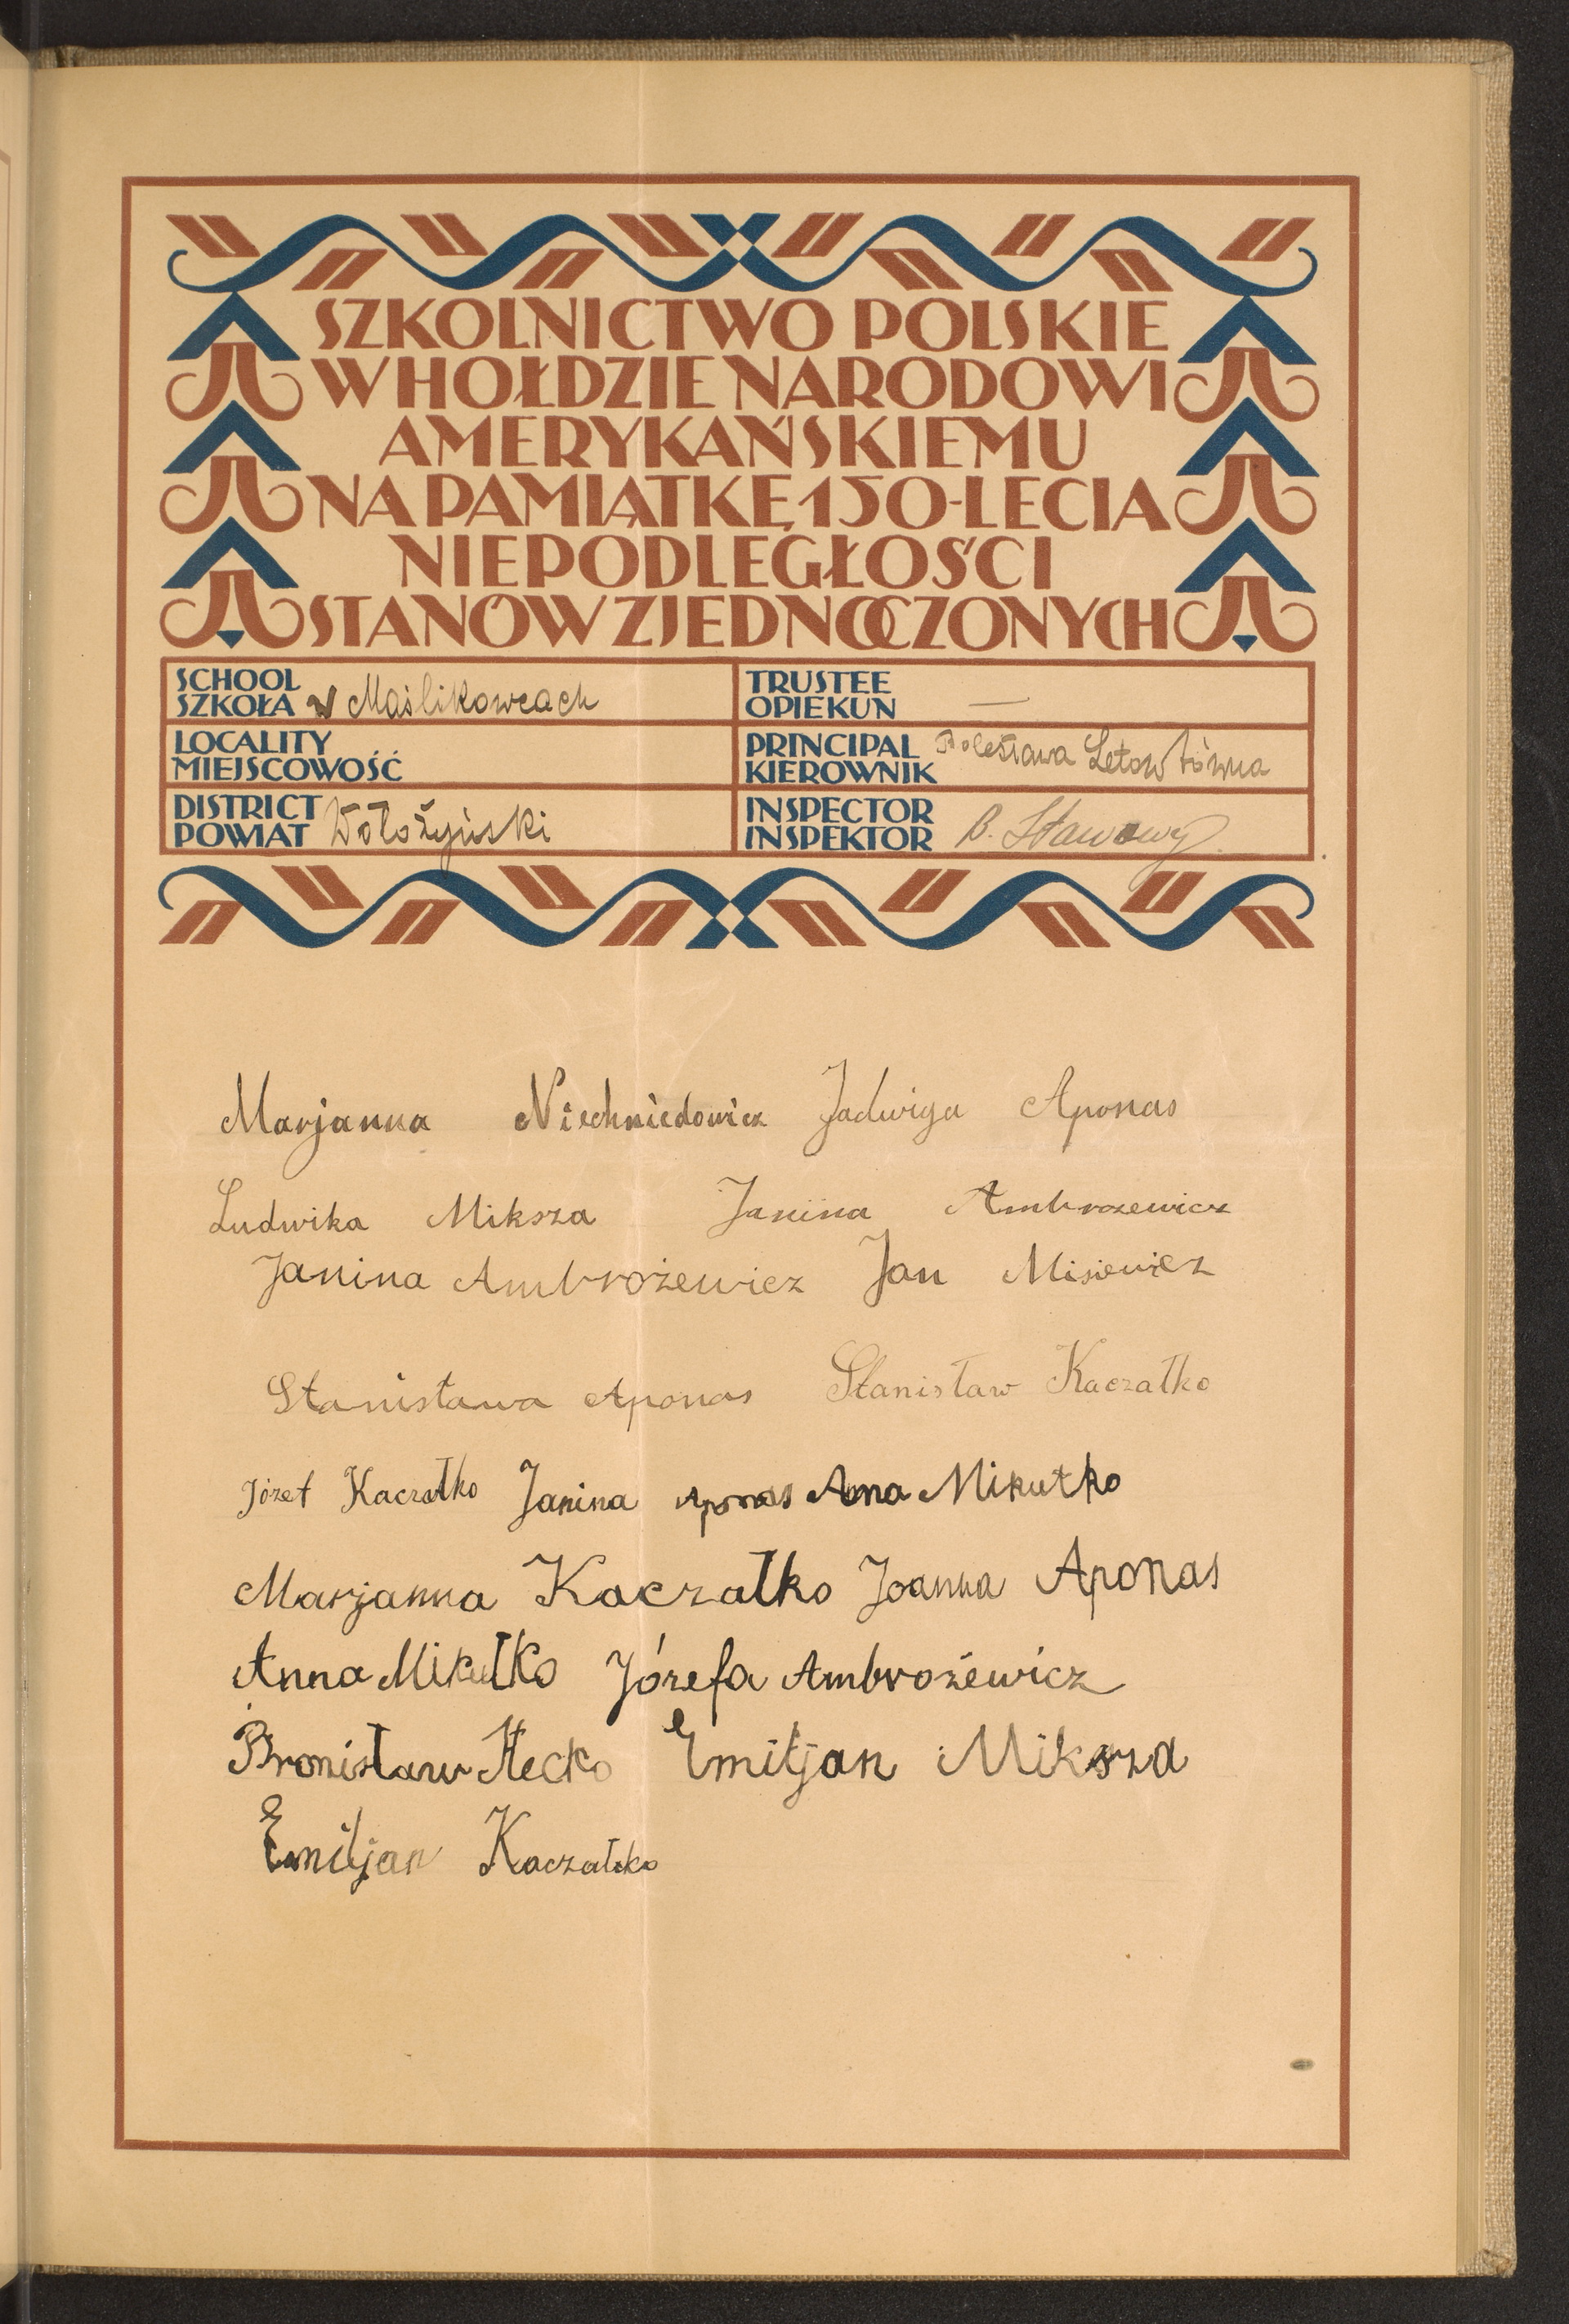 SZKOLNICTWO POLSKIE
W HOŁDZIE NARODOWI
AMERYKAŃSKIEMU
NA PAMIĄTKĘ 150-LECIA
NIEPODLEGŁOŚCI
STANÓW ZJEDNOCZONYCH
SCHOOL
SZKOŁA w Maślikowcach
TRUSTEE
OPIEKUN —
LOCALITY
MIEJSCOWOŚĆ
PRINCIPAL
KIEROWNIK Bolesława Letowtówna
DISTRICT
POWIAT Wołożyński
INSPECTOR
INSPEKTOR B. Stawowy
Marjanna Niechniedowicz Jadwiga Aponas
Ludwika Miksza Janina Ambrozewicz
Janina Ambrożewicz Jan Misiewicz
Stanisława Aponas Stanisław Kaczałko
Józef Kaczałko Janina Aponas Anna Mikutko
Marjanna Kaczałko Joanna Aponas
Anna Mikułko Józefa Ambrożewicz
Bronisław Hecko Emiljan Miksza
Emiljan Kaczałko